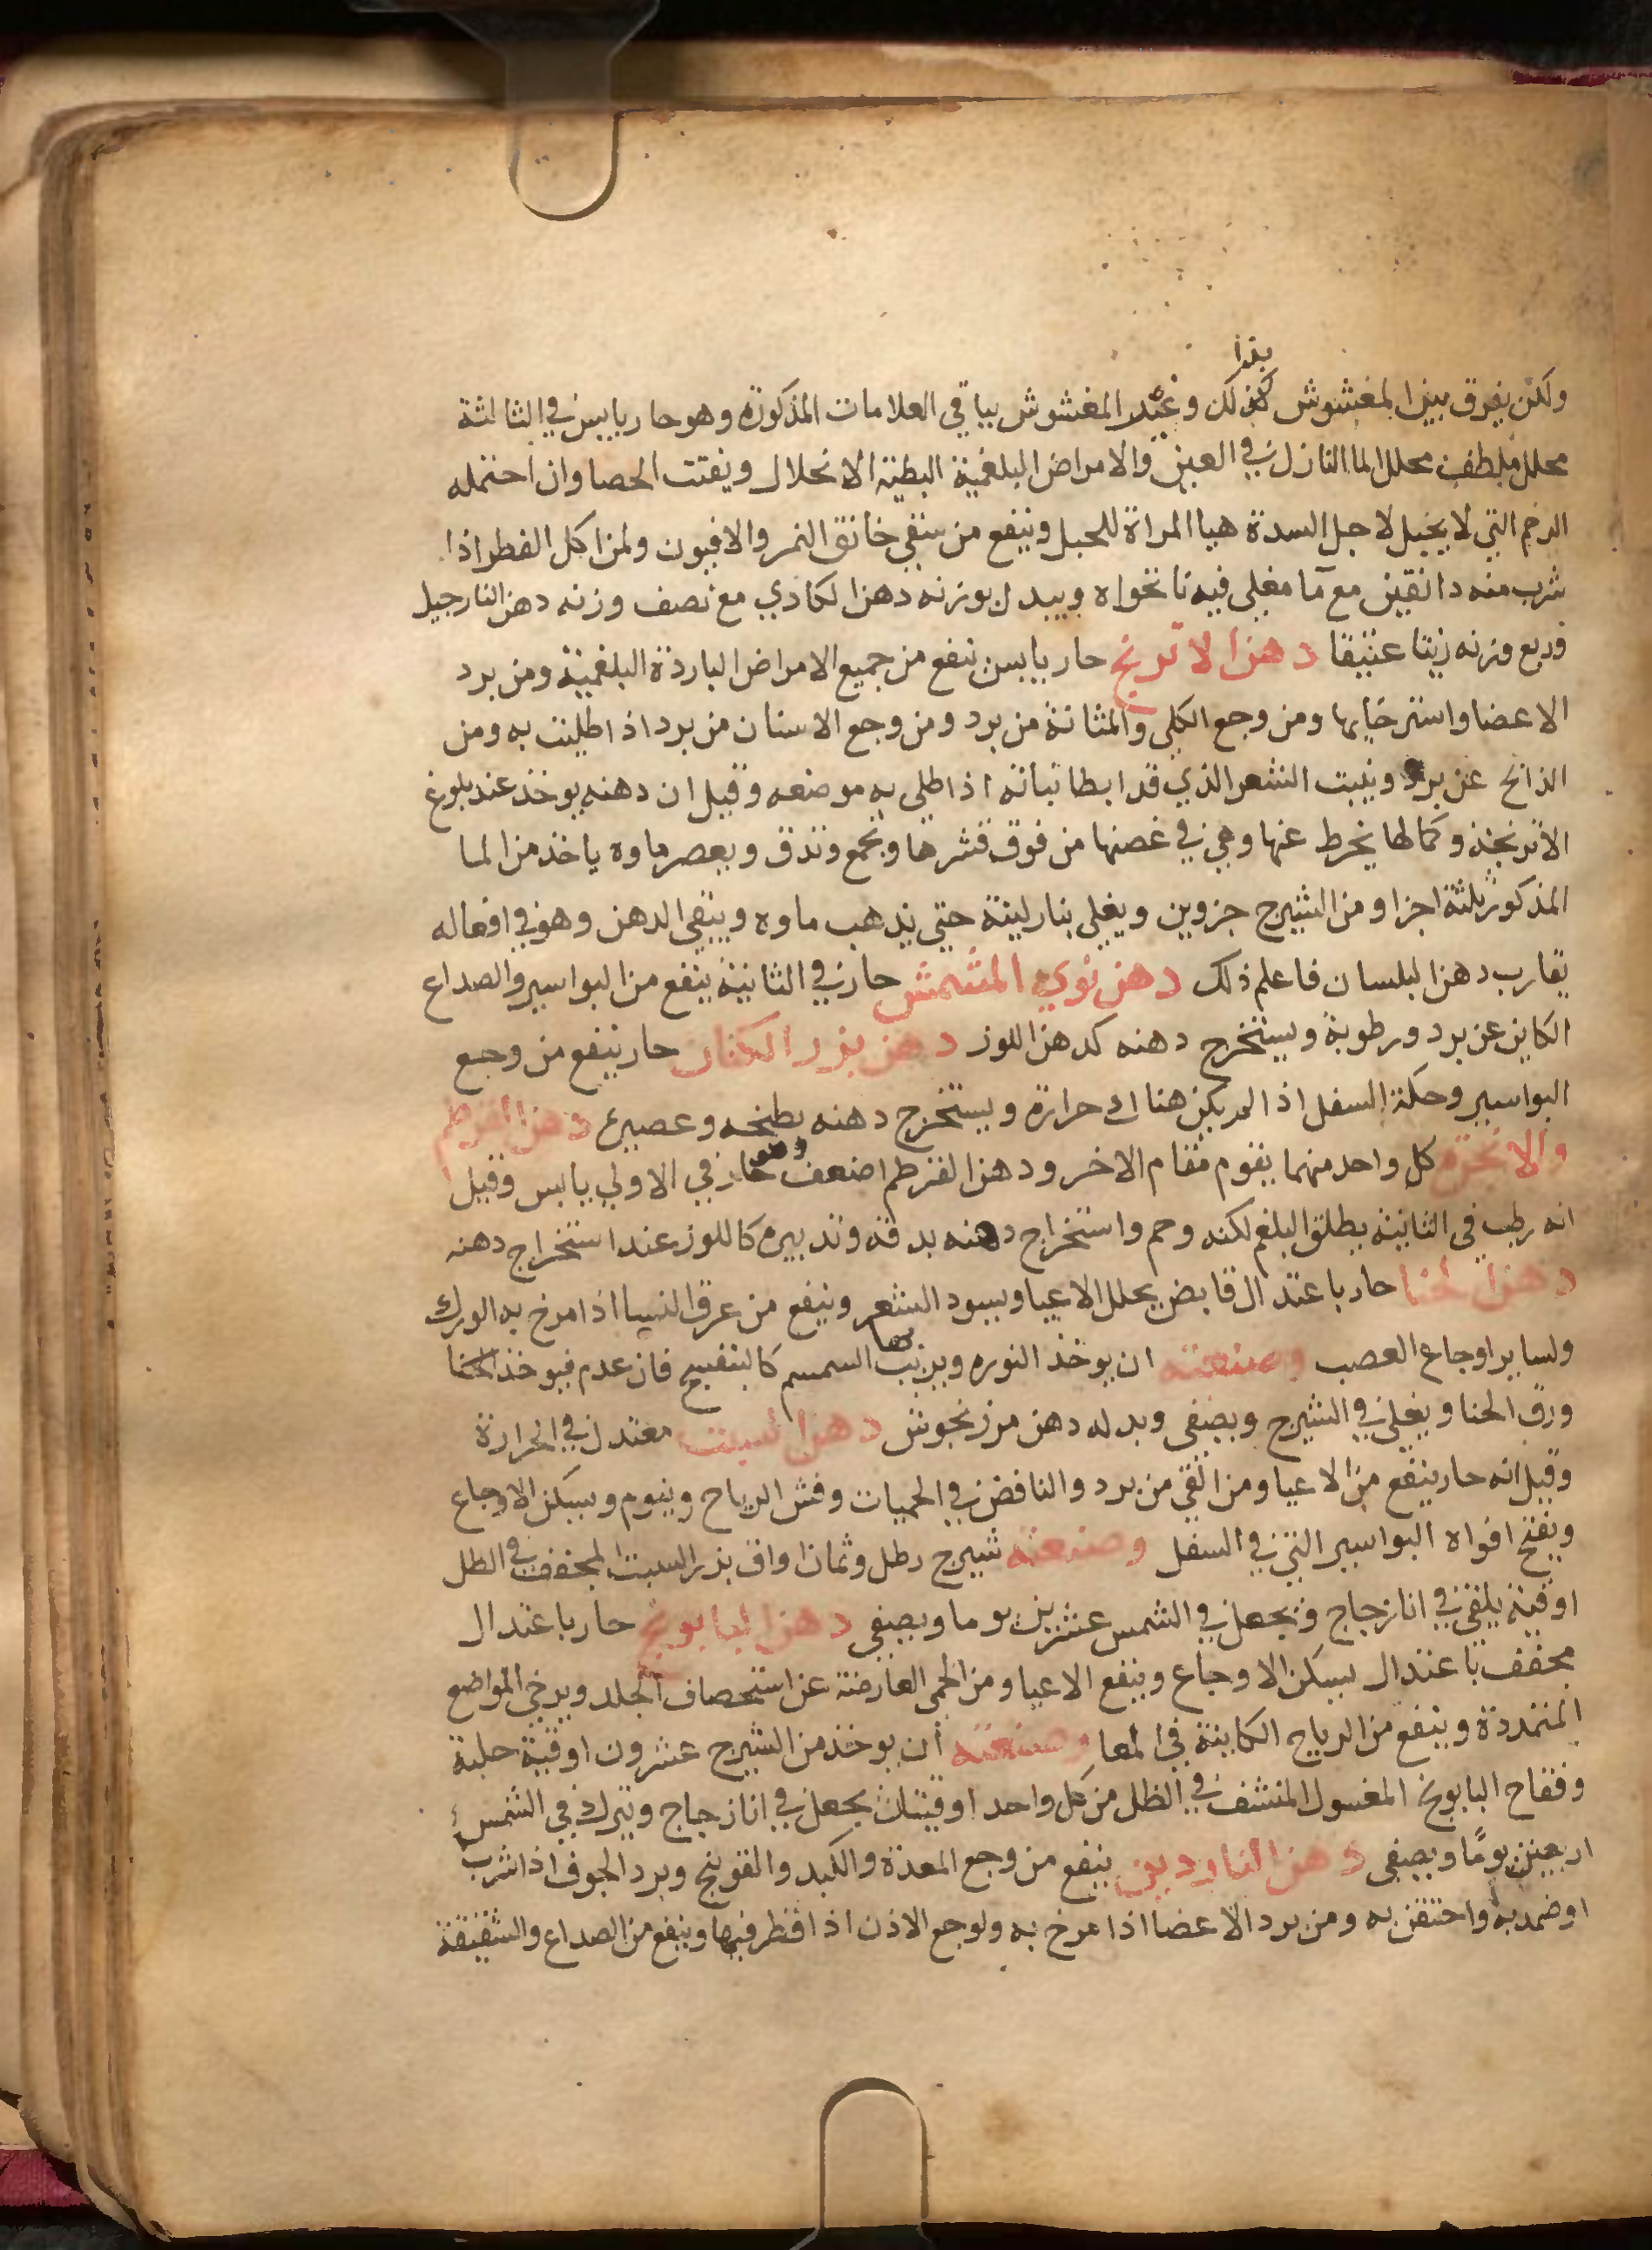 بهذا
ولكن يفرق بين المغشوش كذلك وغير المغشوش بباقي العلامات المذكورة وهو حار يابس في الثالثة
محلل ملطف محلل الما النازل في العين والامراض البلغمية البطية الانحلال ويفتت الحصا وان احتمله
الرحم التي لا يحبل لاجل السدة هيا المراة للحبل وينفع من سقي خانق النمر والافيون ولمن اكل الفطر اذا
شرب منه دانقين مع ما مغلي فيه نانخواه ويبدل بوزنه دهن الكادي مع نصف وزنه دهن النارجيل
وربع وزنه زيتا عتيقا دهن الاترنج حار يابس ينفع من جميع الامراض الباردة البلغمية ومن برد
الاعضا واسترخايها ومن وجع الكلي والمثانة من برد ومن وجع الاسنان من برد اذ اطليت به ومن
عن برد وينبت الشعر الذي قد ابطا نباته اذا طلي به موضعه وقيل ان دهنه يوخذ عند بلوغ
الاترنجة وكمالها يخرط عنها وهي في غصنها من فوق قشرها ويجمع وتدق ويعصر ماوه ياخذ من الما
المذكور ثلثة اجزا ومن الشيرج جزوين ويغلي بنار لينة حتي يذهب ماوه ويبقي الدهن وهو في افعاله
يقارب دهن البلسان فاعلم ذلك دهن نوي المشمش حار في الثانية ينفع من البواسير والصداع
الكاين عن برد ورطوبة ويستخرج دهنه كدهن اللوز دهن بزر الكتان حار ينفع من وجع
البواسير وحكة السفل اذ الم يكن هناك حرارة ويستخرج دهنه بطبخه وعصيره دهن القرطم
والانجرة كل واحد منهما يقوم مقام الاخر ودهن القرطم اضعف وهو حار في الاولي يابس وقيل
انه رطب في الثانية يطلق البلغم لكنه وحم واستخراج دهنه بدقه وتدبيره كاللوز عند استخراج دهنه
دهن الحنا حار باعتدال قابض يحلل الاعيا ويسود الشعر وينفع من عرق النسا اذا مرخ به الورك
ولساير اوجاع العصب وصنعته ان يوخذ النوره ويربب بها السمسم كالبنفسج فان عدم فيوخذ الحنا
ورق الحنا ويغلي في الشيرج ويصفي وبدله دهن مرزنجوش دهن الشبت معتدل في الحرارة
وقيل انه حار ينفع من الاعيا ومن القي من برد والنافض في الحميات وفش الرياح وينوم ويسكن الاوجاع
ويفتح افواه البواسير التي في السفل وصنعته شيرج رطل وثمان اواق بزر السبت المجفف في الظل
اوقية يلقي في انا زجاج ويجعل في الشمس عشرين يوما ويصفي دهن البابونج حار باعتدال
مجفف باعتدال يسكن الاوجاع وينفع الاعيا ومن الحمي العارضة عن استحصاف الجلد ويرخي المواضع
المتمددة وينفع من الرياح الكاينة في المعا وصنعته ان يوخذ من الشيرج عشرون اوقية حلبة
وفقاح البابونج المغسول المنشف في الظل من كل واحد اوقيتان يجعل في انا زجاج ويترك في الشمس
اربعين يومًا ويصفي دهن الناردين ينفع من وجع المعدة والكبد والقولنج وبرد الجوف اذا شرب
او ضمد به واحتقن به ومن برد الاعضا اذا مرخ به ولوجع الاذن اذ اقطر فيها وينفع من الصداع والشقيقة